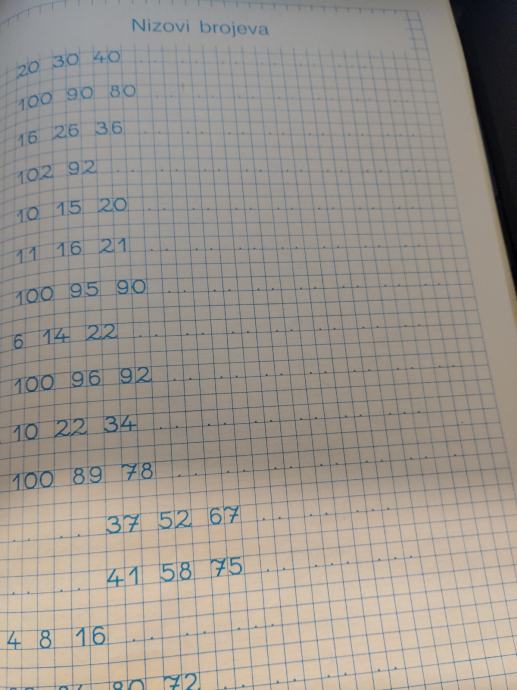 Nizovi brojeva
20 30 40
100 90 80
16 26 36
102 92
10 15 20
11 16 21
100 95 90
6 14 22
100 96 92
10 22 34
100 89 78
37 52 67
41 58 75
4 8 16
80 72